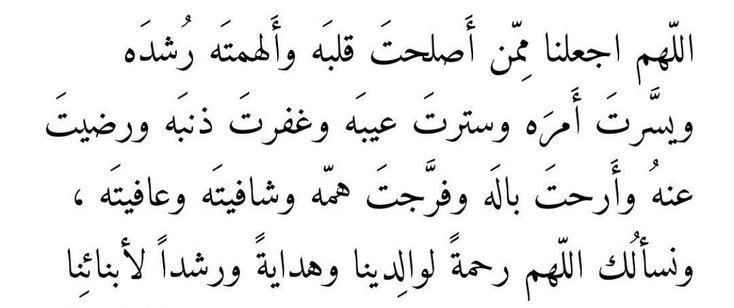 اللّهم اجعلنا مِمّن أَصلحتَ قلبَه وأَلهمتَه رُشدَه
ويسَّرتَ أَمرَه وسترتَ عيبَه وغفرتَ ذنبَه ورضيتَ
عنهُ وأَرحتَ بالَه وفرَّجتَ همّه وشافيتَه وعافيتَه ،
ونسألُك اللّهم رحمةً لوالِدينا وهدايةً ورشداً لأبنائِنا